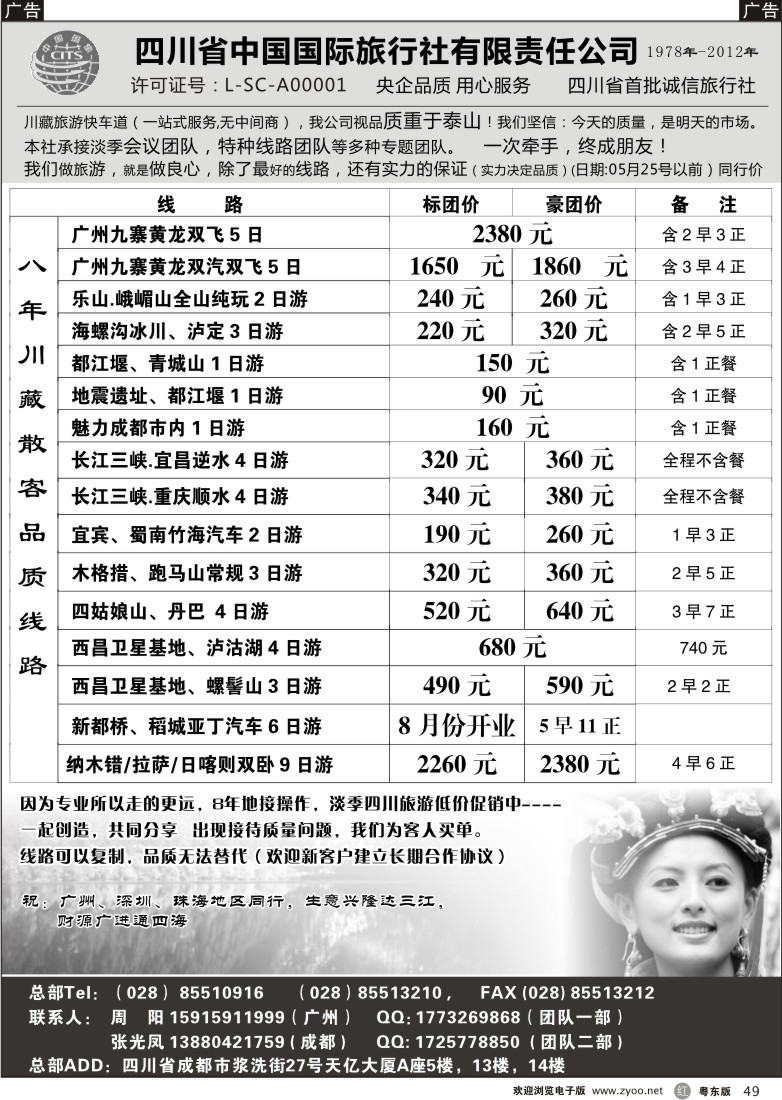 广告
广告
CITS
四川省中国国际旅行社有限责任公司 1978年-2012年
许可证号：L-SC-A00001 央企品质 用心服务 四川省首批诚信旅行社
川藏旅游快车道（一站式服务,无中间商），我公司视品质重于泰山！我们坚信：今天的质量，是明天的市场。
本社承接淡季会议团队，特种线路团队等多种专题团队。 一次牵手，终成朋友！
我们做旅游，就是做良心，除了最好的线路，还有实力的保证（实力决定品质）(日期:05月25号以前）同行价
线 路 标团价 豪团价 备 注
八年川藏散客品质线路
广州九寨黄龙双飞5日 2380元 含2早3正
广州九寨黄龙双汽双飞5日 1650 元 1860 元 含3早4正
乐山.峨嵋山全山纯玩2日游 240元 260元 含1早3正
海螺沟冰川、泸定3日游 220元 320元 含2早5正
都江堰、青城山1日游 150 元 含1正餐
地震遗址、都江堰1日游 90 元 含1正餐
魅力成都市内1日游 160 元 含1正餐
长江三峡.宜昌逆水4日游 320元 360元 全程不含餐
长江三峡.重庆顺水4日游 340元 380元 全程不含餐
宜宾、蜀南竹海汽车2日游 190元 260元 1早3正
木格措、跑马山常规3日游 320元 360元 2早5正
四姑娘山、丹巴 4日游 520元 640元 3早7正
西昌卫星基地、泸沽湖4日游 680元 740元
西昌卫星基地、螺髻山3日游 490元 590元 2早2正
新都桥、稻城亚丁汽车6日游 8月份开业 5早11正
纳木错/拉萨/日喀则双卧9日游 2260元 2380元 4早6正
因为专业所以走的更远，8年地接操作，淡季四川旅游低价促销中----
一起创造，共同分享 出现接待质量问题，我们为客人买单。
线路可以复制，品质无法替代（欢迎新客户建立长期合作协议）
祝：广州、深圳、珠海地区同行，生意兴隆达三江，
财源广进通四海
总部Tel：（028）85510916 （028）85513210， FAX (028) 85513212
联系人： 周 阳 15915911999（广州） QQ: 1773269868（团队一部）
张光凤 13880421759（成都） QQ: 1725778850（团队二部）
总部ADD：四川省成都市浆洗街27号天亿大厦A座5楼，13楼，14楼
欢迎浏览电子版 www.zyoo.net 红 粤东版 49